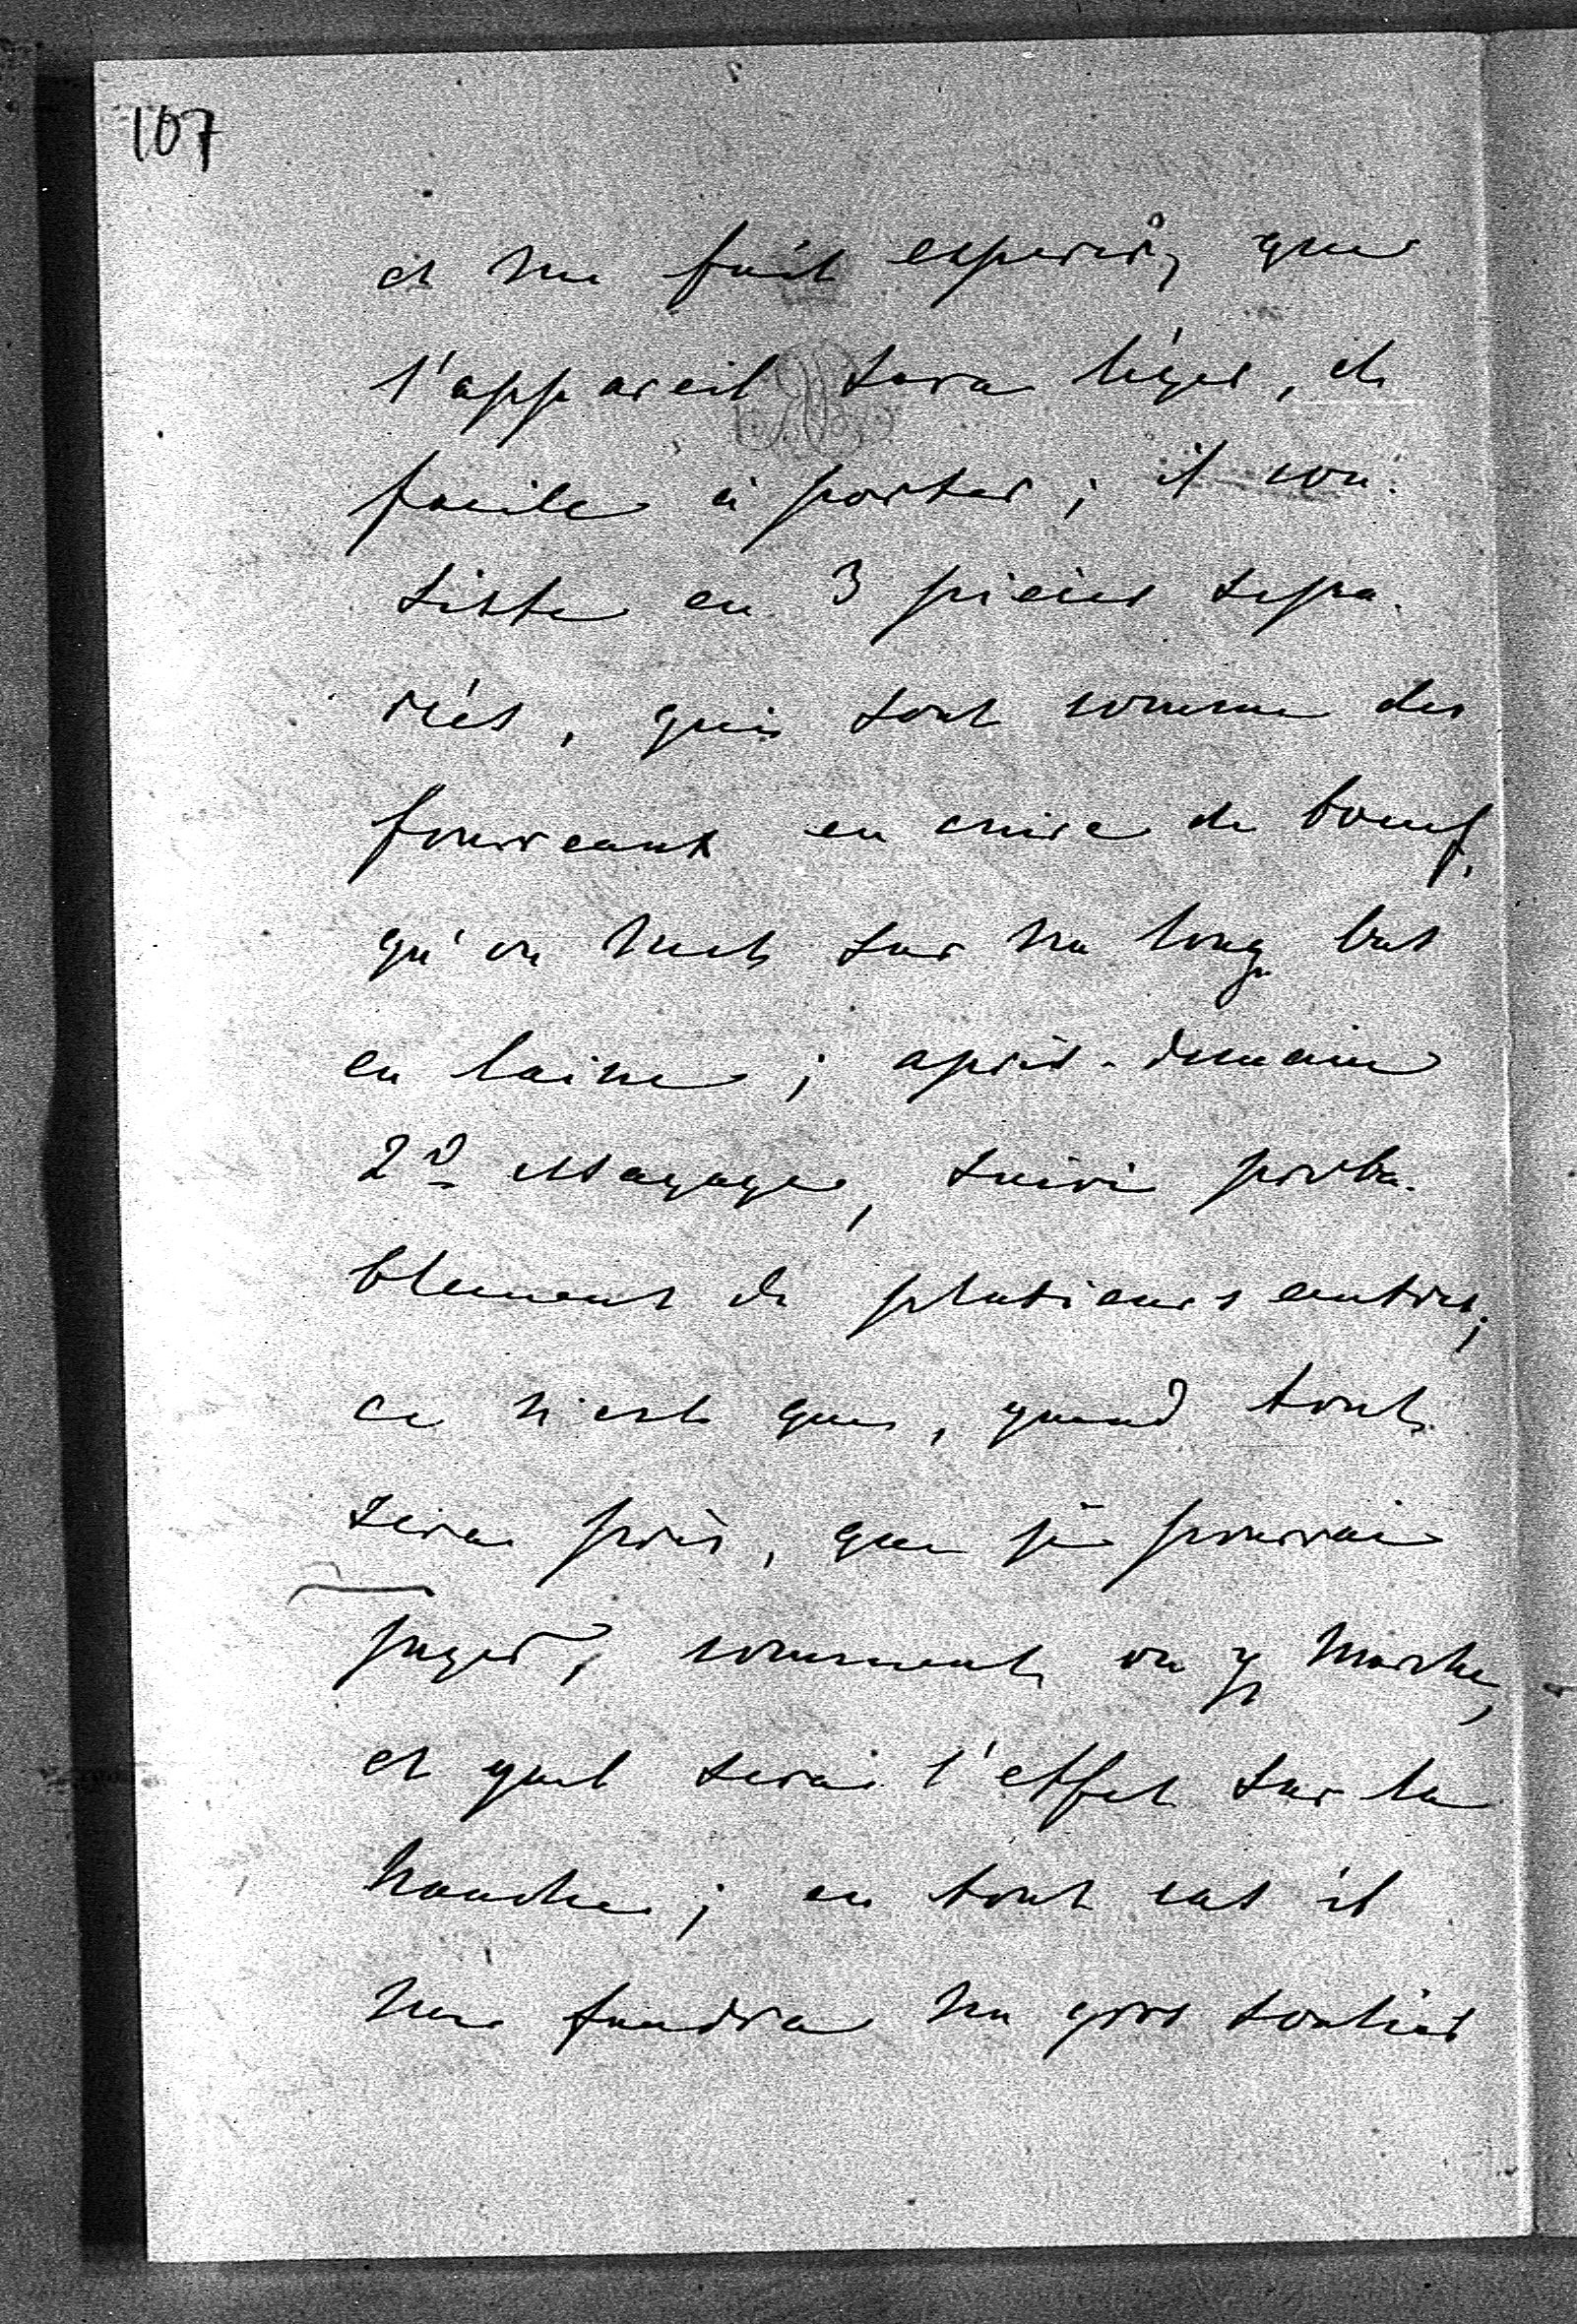 107
et me fait esperer, que
l'appareil sera léger, et
facile à porter; il con-
siste en 3 pièces sepa-
rés, qui sont comme des
fourreaux en cuire de boeuf,
qu'on met sur un long bas
en laine; après-demain
2d essayage, suivi proba-
blement de plusieurs autres;
ce n'est que, quand tout
sera près, que je pourrai
juger, comment on y marche,
et quel sera l'effet sur la
hanche; en tout cas il
me faudra un gros soulier